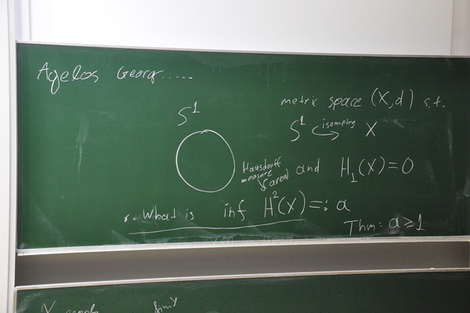 Agelos Georg.....
S¹
metric space (X,d) s.t.
S¹ ↪ X
isometry
Hausdorff
measure
(area)
and H₁(X)=0
What is inf H²(X)=: a
Thm: a⩾1